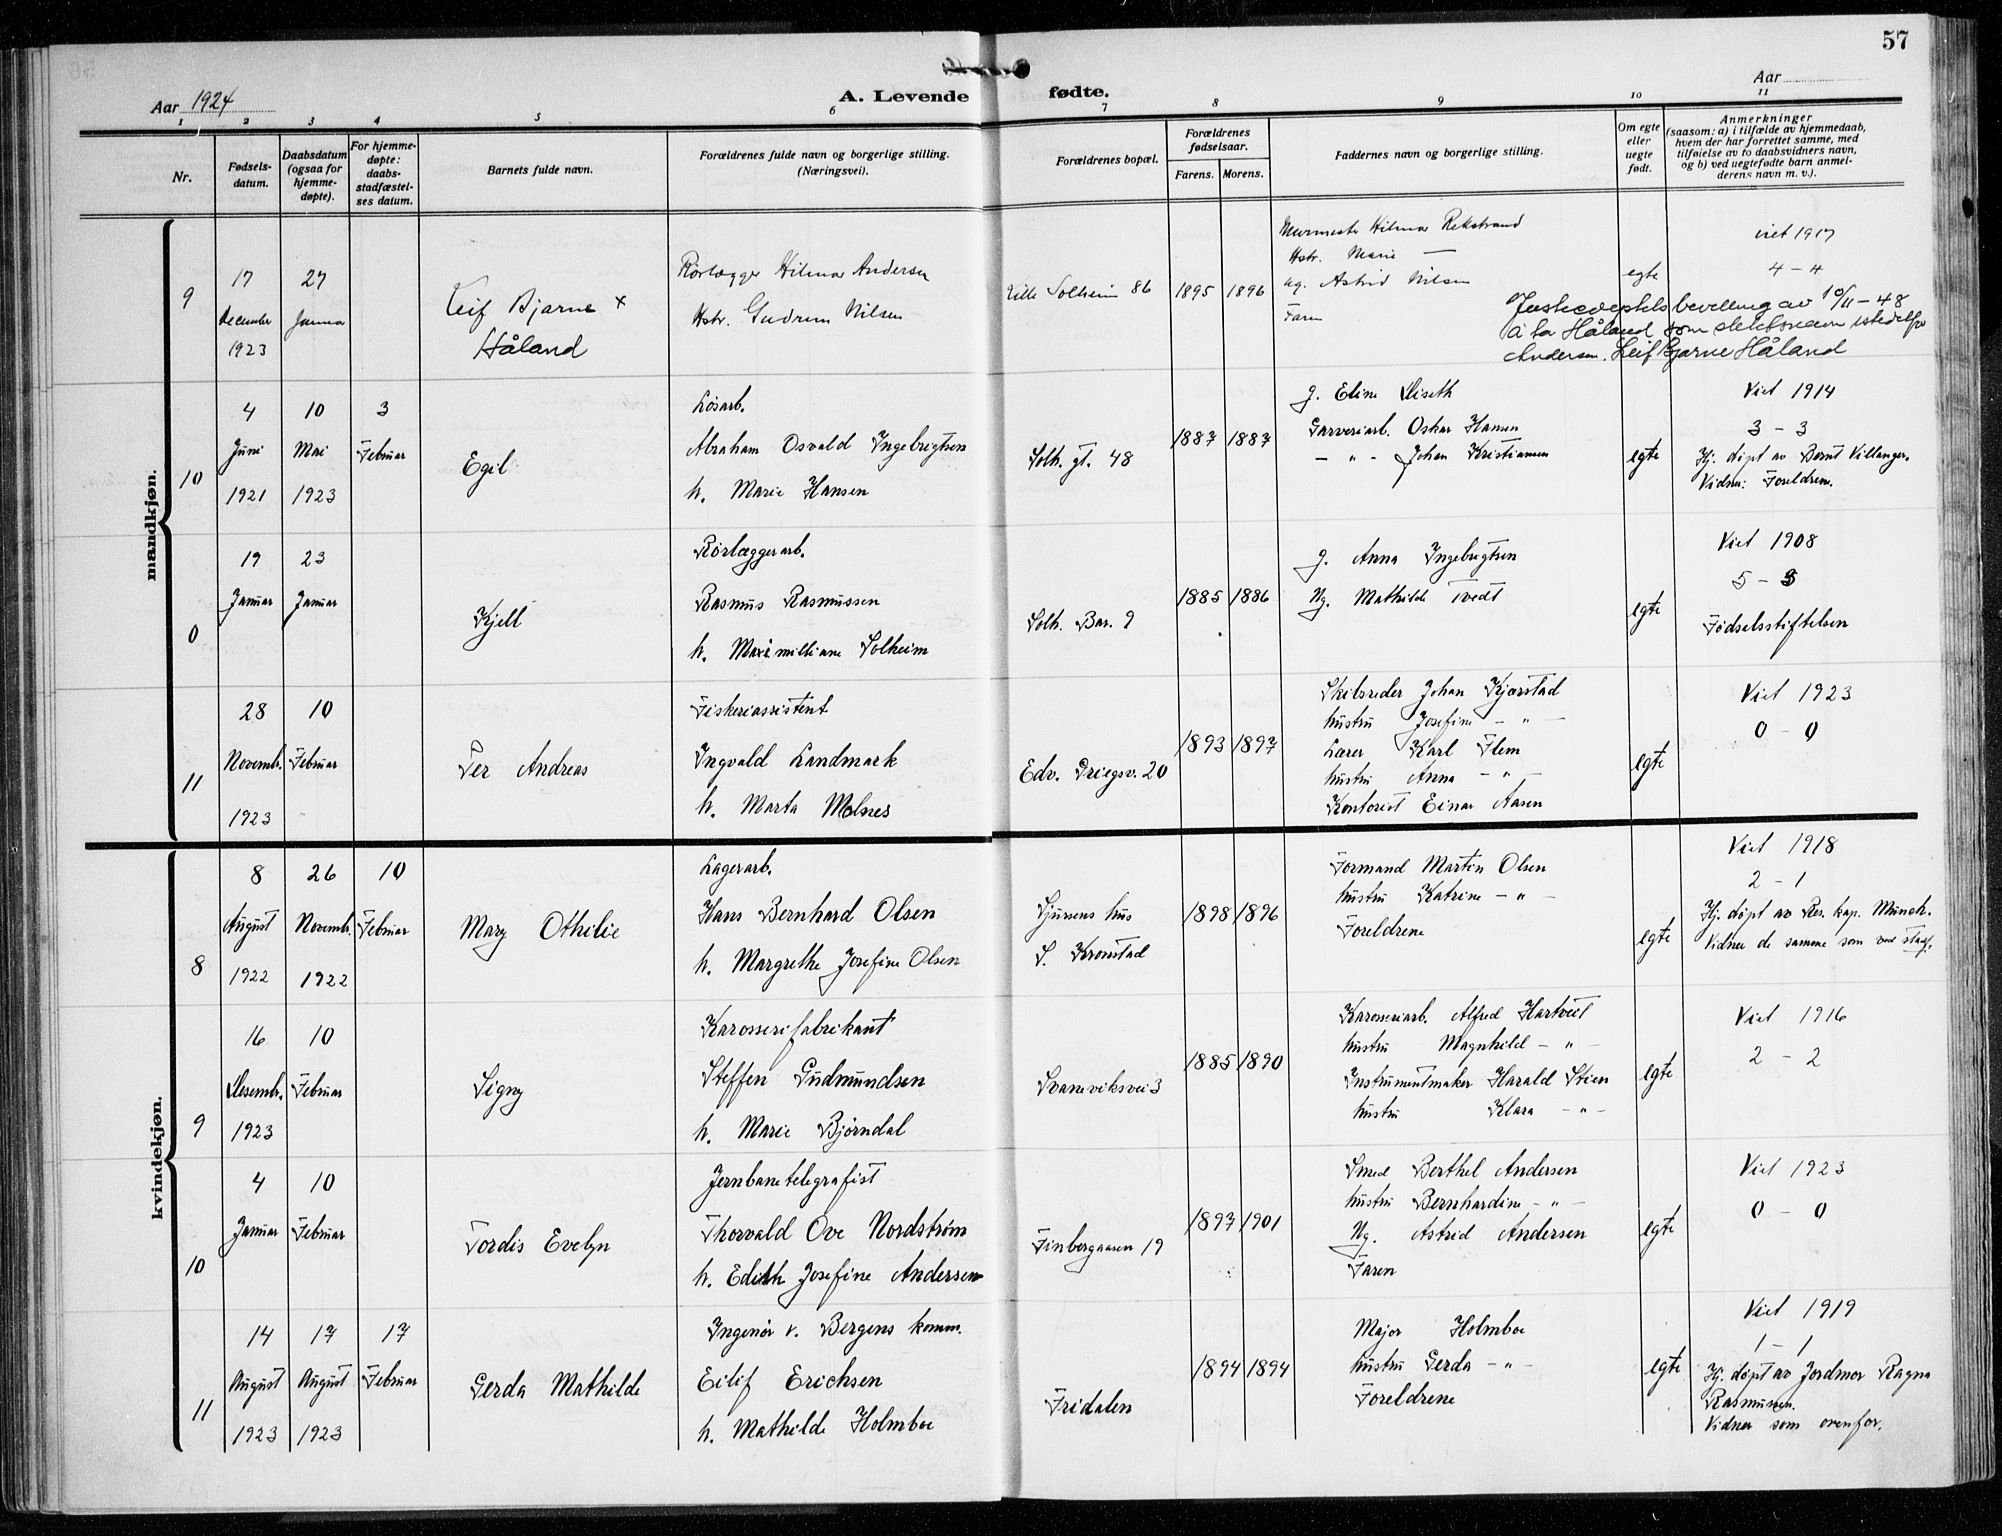 57
Aar 1924
A. Levende fødte.
Aar
1 2 3 4 5 6 7 8 9 10 11
Nr.
Fødsels-
datum.
Daabsdatum
(ogsaa for
hjemme-
døpte).
For hjemme-
døpte:
daabs-
stadfæstel-
ses datum.
Barnets fulde navn.
Forældrenes fulde navn og borgerlige stilling.
(Næringsvei).
Forældrenes bopæl.
Forældrenes
fødselsaar.
Farens. Morens.
Faddernes navn og borgerlige stilling.
Om egte
eller
uegte
født.
Anmerkninger
(saasom: a) i tilfælde av hjemmedaab,
hvem der har forrettet samme, med
tilføielse av to daabsvidners navn,
og b) ved uegtefødte barn anmel-
derens navn m. v.).
mandkjøn.
9
17
December
1923
27
Januar
Leif Bjarne x
Håland
Rørlægger Hilmar Andersen
Hstr. Gudrun Nilsen
Lille Solheim 86
1895 1896
Murmester Hilmar Rekstrand
Hstr. Marie —
ug. Astrid Nilsen
Faren
egte
viet 1917
4 - 4
Justisdeptets bevilling av 10/11-48
å ta Håland som slektsnavn istedetfor
Andersen. Leif Bjarne Håland
10
4
Juni
1921
10
Mai
1923
3
Februar
Egil
Løsarb.
Abraham Osvald Ingebrigtsen
h. Marie Hansen
Solh. gt. 48
1887 1887
g. Eline Diseth
Garveriarb. Oskar Hansen
- " - Johan Kristiansen
egte
Viet 1914
3 - 3
Hj. døpt av Bernt Villanger.
Vidner: Foreldrene.
0
19
Januar
23
Januar
Kjell
Rørlæggerarb.
Rasmus Rasmussen
h. Maximiliane Solheim
Solh. Bar. 9
1885 1886
g. Anna Ingebrigtsen
Ug. Mathilde Tvedt
egte
Viet 1908
5 - 3
Fødselsstiftelsen
11
28
Novemb.
1923
10
Februar
Per Andreas
Fiskeriassistent
Ingvald Landmark
h. Marta Molnes
Edv. Griegsv. 20
1893 1897
Skibsreder Johan Kjørstad
hustru Josefine - " -
Lærer Karl Flem
hustru Anna - " -
Kontorist Einar Aasen
egte
Viet 1923
0 - 0
kvindekjøn.
8
8
August
1922
26
Novemb.
1922
10
Februar
Mary Othilie
Lagerarb.
Hans Bernhard Olsen
h. Margrethe Josefine Olsen
Sjursens hus
S. Kronstad
1898 1896
Formand Martin Olsen
hustru Katrine - " -
Foreldrene
egte
Viet 1918
2 - 1
Hj. døpt av Res. kap. Münch.
Vidner de samme som ved stadf.
9
16
Desemb.
1923
10
Februar
Signy
Karosserifabrikant
Steffen Gudmundsen
h. Marie Bjørndal
Svaneviksvei 3
1885 1890
Karosseriarb. Alfred Hartveit
hustru Magnhild - " -
Instrumentmaker Harald Stien
hustru Klara - " -
egte
Viet 1916
2 - 2
10
4
Januar
10
Februar
Tordis Evelyn
Jernbanetelegrafist
Thorvald Ove Nordstrøm
h. Edith Josefine Andersen
Finbergaasen 19
1897 1901
Smed Berthel Andersen
hustru Bernhardine - " -
Ug. Astrid Andersen
Faren
egte
Viet 1923
0 - 0
11
14
August
1923
17
August
1923
17
Februar
Gerda Mathilde
Ingenør v. Bergens komm.
Eilif Erichsen
h. Mathilde Holmboe
Fridalen
1894 1894
Major Holmboe
hustru Gerda - " -
Foreldrene
egte
Viet 1919
1 - 1
Hj. døpt av Jordmor Ragna
Rasmussen.
Vidner som ovenfor.